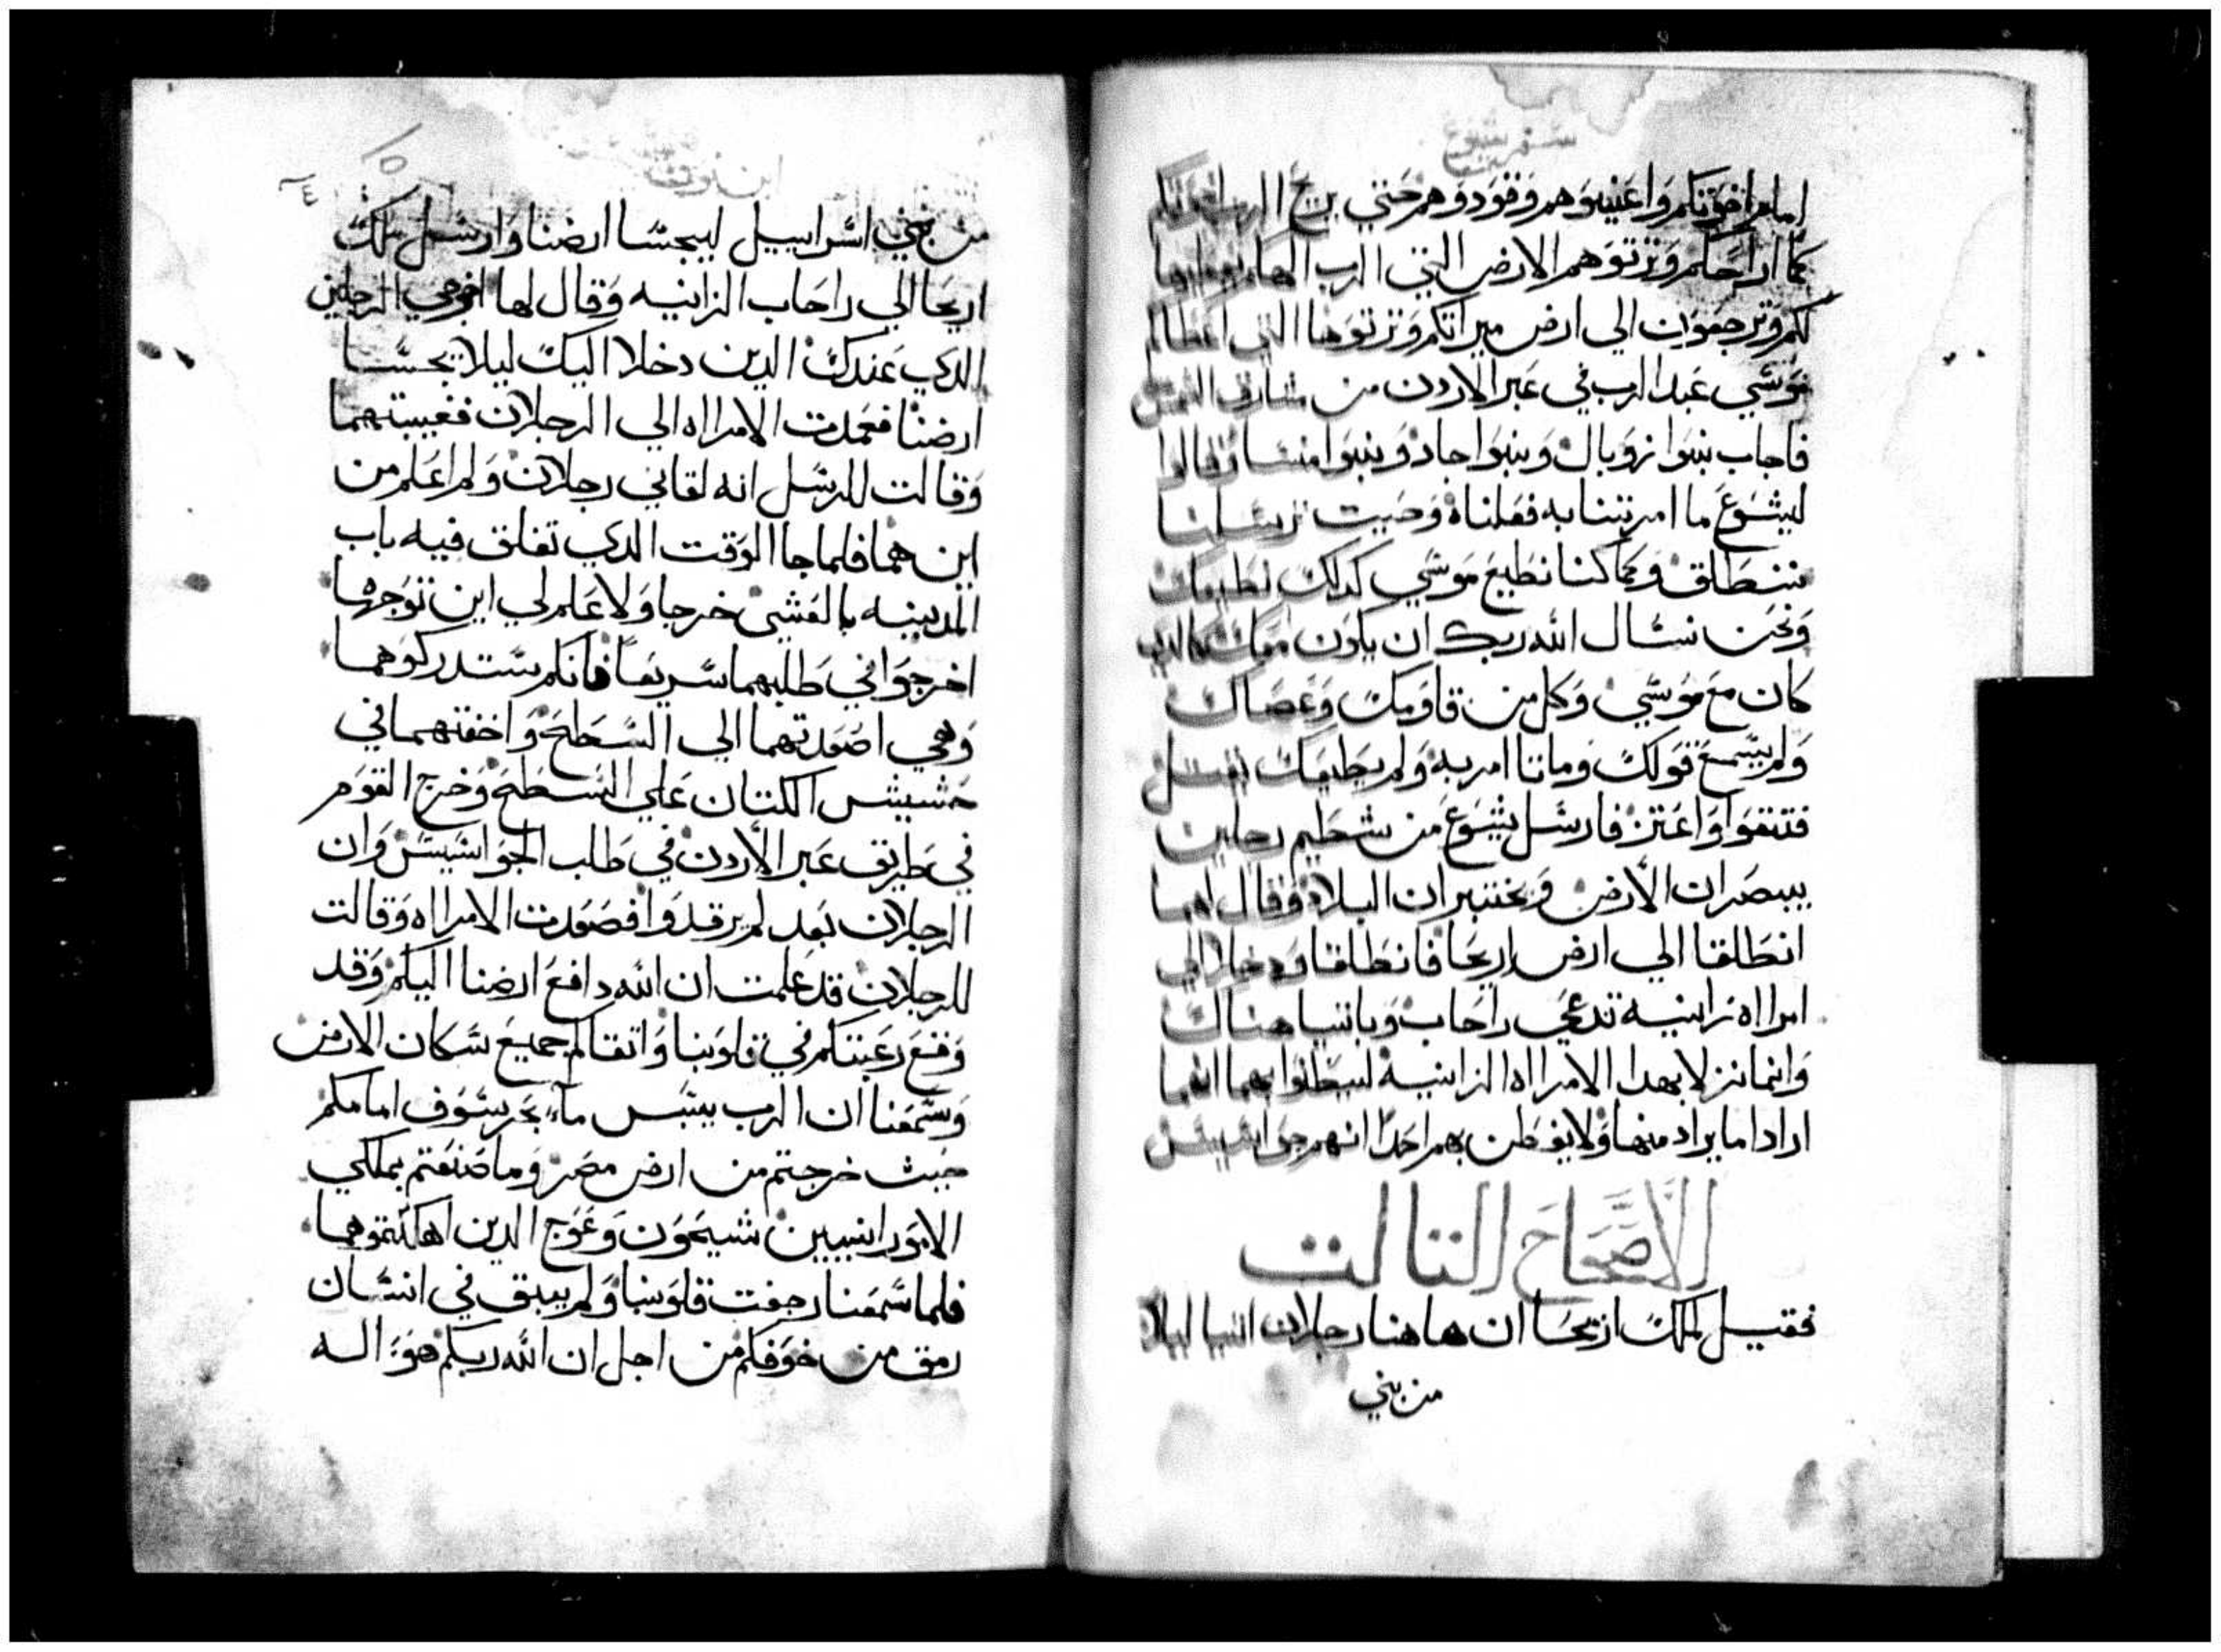 سفر يشوع
امام اخوتكم واعينوهم وقودوهم حتي يريح الرب اخوتكم
كما اراحكم وترتوهم الارض التي الرب
لكم وترجعون الي ارض ميراتكم وترتوها التي اعطاكم
موسي عبد الرب في عبر الاردن من مشارق الشمس
فاجاب بنوا زوبال وبنوا جاد وبنوا منسا وقالوا
ليشوع ما امرتنا به فعلناه وحيت ترسلنا
ننطلق وكما كنا نطيع موسي كدلك نطيعك
ونحن نسال الله ربك ان يكون معك كالدي
كان مع موسي وكل من قاومك وعصاك
ولم يسمع قولك وماتا امر به ولم يطيعك يقتل
فتقوا واعتز فارسل يشوع من شطيم رجلين
يبصران الارض ويختبران البلاد وقال لهما
انطلقا الي ارض اريحا فانطلقا ودخلا الي
امراه زانيه تدعي راحاب وباتيا هناك
وانما نزلا بهدا الامراه الزانيه ليظنوا بهما انهما
ارادا ما يراد منها ولا يفطن بهم احدا انهم جواسيس
الاصحاح التالت
فقيل لملك اريحا ان هاهنا رجلان اتيا ليلا
من بني
ابن نون
١٥
من بني اسراييل ليجسا ارضنا وارسل ملك
اريحا الي راحاب الزانيه وقال لها اخرجي الرجلين
الدي عندك الدين دخلا اليك ليلا يجسا
ارضنا فعمدت الامراه الي الرجلان فغيبتهما
وقالت للرسل انه لقاني رجلان ولم اعلم من
اين هما فلما جا الوقت الدي تغلق فيه باب
المدينه بالعشي خرجا ولا علم لي اين توجها
اخرجوا في طلبهما سريعا فانكم ستدركوهما
وهي اصعدتهما الي السطح واخفتهما في
حشيش الكتان علي السطح وخرج القوم
في طريق عبر الأردن في طلب الجواسيس وان
الرجلان بعد لم يرقدوا فصعدت الامراه وقالت
للرجلان قد علمت ان الله دافع ارضنا اليكم وقد
وقع رعبتكم في قلوبنا واتقاكم جميع سكان الارض
وسمعنا ان الرب يبس مآء بحر سوف امامكم
حيث خرجتم من ارض مصر وما صنعتم بملكي
الامورانيين شيحون وعوج الدين اهلكتموهما
فلما سمعنا رجفت قلوبنا ولم يبق في انسان
رمق من خوفكم من اجل ان الله ربكم هو اله